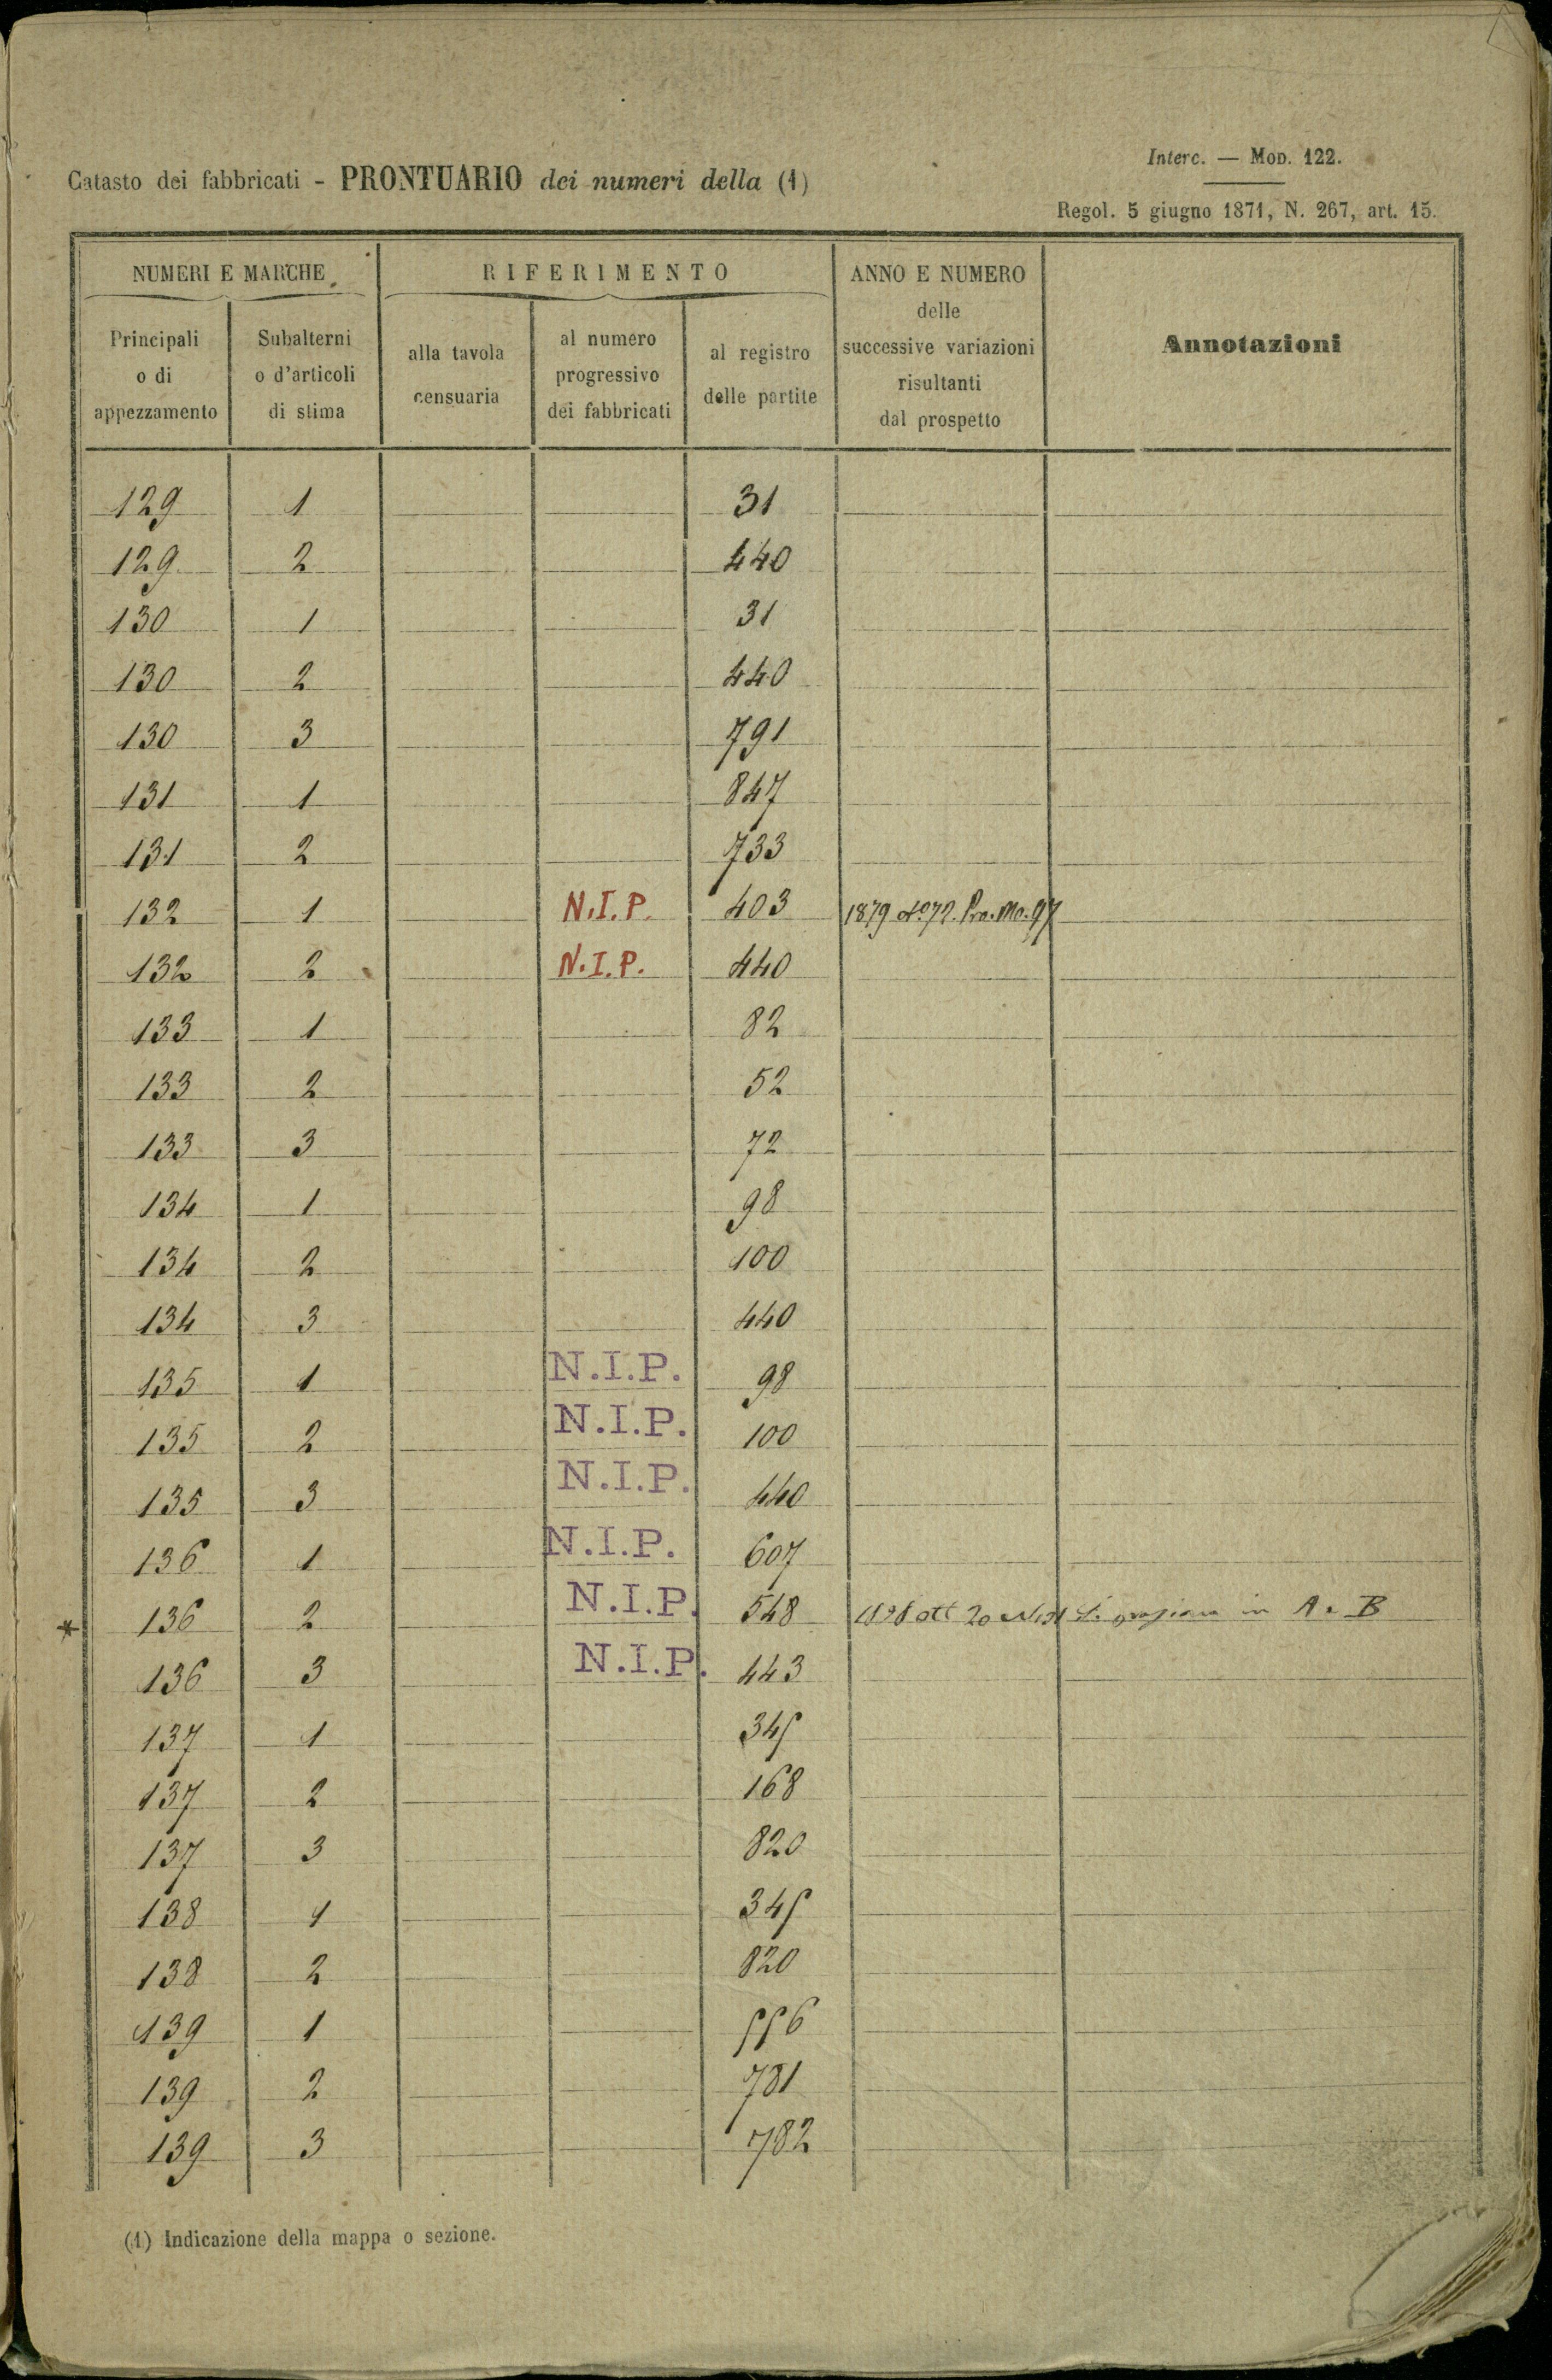 Interc. — MOD. 122.
Catasto dei fabbricati - PRONTUARIO dei numeri della (1)
Regol. 5 giugno 1871, N. 267, art. 15.
NUMERI E MARCHE
RIFERIMENTO
ANNO E NUMERO
delle
successive variazioni
risultanti
dal prospetto
Annotazioni
Principali
o di
appezzamento
Subalterni
o d'articoli
di stima
alla tavola
censuaria
al numero
progressivo
dei fabbricati
al registro
delle partite
129 1 31
129 2 440
130 1 31
130 2 440
130 3 791
131 1 847
131 2 733
132 1 N.I.P. 403 1879 No 72. Pra. Mo. 97
132 2 N.I.P. 440
133 1 82
133 2 52
133 3 72
134 1 98
134 2 100
134 3 440
135 1 N.I.P. 98
135 2 N.I.P. 100
135 3 N.I.P. 440
136 1 N.I.P. 607
* 136 2 N.I.P. 548 ott 20 in A e B
136 3 N.I.P. 443
137 1 345
137 2 168
137 3 820
138 1 345
138 2 820
139 1 556
139 2 781
139 3 782
(1) Indicazione della mappa o sezione.